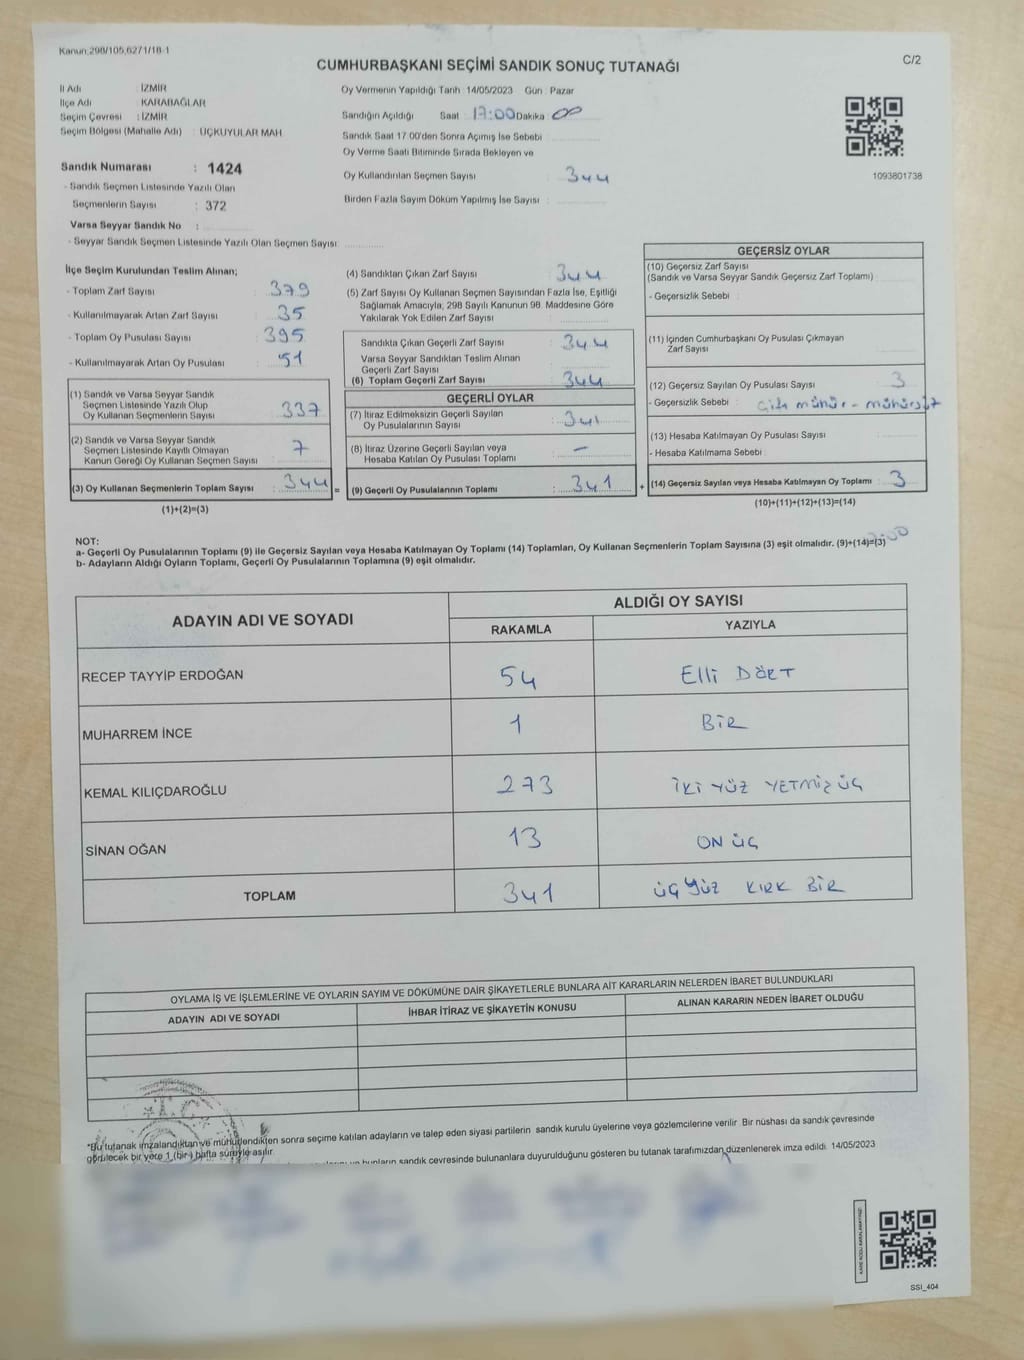 Kanun:298/105,6271/18-1
C/2
CUMHURBAŞKANI SEÇİMİ SANDIK SONUÇ TUTANAĞI
İl Adı : İZMİR
İlçe Adı : KARABAĞLAR
Seçim Çevresi : İZMİR
Seçim Bölgesi (Mahalle Adı) : ÜÇKUYULAR MAH
Sandık Numarası : 1424
- Sandık Seçmen Listesinde Yazılı Olan
Seçmenlerin Sayısı : 372
Varsa Seyyar Sandık No :
- Seyyar Sandık Seçmen Listesinde Yazılı Olan Seçmen Sayısı
Oy Vermenin Yapıldığı Tarih 14/05/2023 Gün : Pazar
Sandığın Açıldığı Saat 17:00 Dakika 00
Sandık Saat 17.00'den Sonra Açımış İse Sebebi
Oy Verme Saati Bitiminde Sırada Bekleyen ve
Oy Kullandırılan Seçmen Sayısı : 344
Birden Fazla Sayım Döküm Yapılmış İse Sayısı :
1093801738
İlçe Seçim Kurulundan Teslim Alınan;
- Toplam Zarf Sayısı : 379
- Kullanılmayarak Artan Zarf Sayısı : 35
- Toplam Oy Pusulası Sayısı : 395
- Kullanılmayarak Artan Oy Pusulası : 51
(1) Sandık ve Varsa Seyyar Sandık
Seçmen Listesinde Yazılı Olup
Oy Kullanan Seçmenlerin Sayısı : 337
(2) Sandık ve Varsa Seyyar Sandık
Seçmen Listesinde Kayıtlı Olmayan
Kanun Gereği Oy Kullanan Seçmen Sayısı : 7
(3) Oy Kullanan Seçmenlerin Toplam Sayısı : 344 =
(1)+(2)=(3)
(4) Sandıktan Çıkan Zarf Sayısı : 344
(5) Zarf Sayısı Oy Kullanan Seçmen Sayısından Fazla İse, Eşitliği
Sağlamak Amacıyla, 298 Sayılı Kanunun 98. Maddesine Göre
Yakılarak Yok Edilen Zarf Sayısı :
Sandıkla Çıkan Geçerli Zarf Sayısı : 344
Varsa Seyyar Sandıktan Teslim Alınan
Geçerli Zarf Sayısı :
(6) Toplam Geçerli Zarf Sayısı : 344
GEÇERLİ OYLAR
(7) İtiraz Edilmeksizin Geçerli Sayılan
Oy Pusulalarının Sayısı : 341
(8) İtiraz Üzerine Geçerli Sayılan veya
Hesaba Katılan Oy Pusulası Toplamı : -
(9) Geçerli Oy Pusulalarının Toplamı : 341 +
GEÇERSİZ OYLAR
(10) Geçersiz Zarf Sayısı
(Sandık ve Varsa Seyyar Sandık Geçersiz Zarf Toplamı) :
- Geçersizlik Sebebi :
(11) İçinden Cumhurbaşkanı Oy Pusulası Çıkmayan
Zarf Sayısı
(12) Geçersiz Sayılan Oy Pusulası Sayısı : 3
- Geçersizlik Sebebi : Çift mühür - mühürsüz
(13) Hesaba Katılmayan Oy Pusulası Sayısı :
- Hesaba Katılmama Sebebi :
(14) Geçersiz Sayılan veya Hesaba Katılmayan Oy Toplamı : 3
(10)+(11)+(12)+(13)=(14)
NOT:
a- Geçerli Oy Pusulalarının Toplamı (9) ile Geçersiz Sayılan veya Hesaba Katılmayan Oy Toplamı (14) Toplamları, Oy Kullanan Seçmenlerin Toplam Sayısına (3) eşit olmalıdır. (9)+(14)=(3)
b- Adayların Aldığı Oyların Toplamı, Geçerli Oy Pusulalarının Toplamına (9) eşit olmalıdır.
ADAYIN ADI VE SOYADI ALDIĞI OY SAYISI
RAKAMLA YAZIYLA
RECEP TAYYİP ERDOĞAN 54 Elli DÖRT
MUHARREM İNCE 1 BİR
KEMAL KILIÇDAROĞLU 273 İKİ YÜZ YETMİŞ ÜÇ
SİNAN OĞAN 13 ON ÜÇ
TOPLAM 341 ÜÇ YÜZ KIRK BİR
OYLAMA İŞ VE İŞLEMLERİNE VE OYLARIN SAYIM VE DÖKÜMÜNE DAİR ŞİKAYETLERLE BUNLARA AİT KARARLARIN NELERDEN İBARET BULUNDUKLARI
ADAYIN ADI VE SOYADI İHBAR İTİRAZ VE ŞİKAYETİN KONUSU ALINAN KARARIN NEDEN İBARET OLDUĞU
T.C.
*Bu tutanak imzalandıktan ve mühürlendikten sonra seçime katılan adayların ve talep eden siyasi partilerin sandık kurulu üyelerine veya gözlemcilerine verilir. Bir nüshası da sandık çevresinde
görülecek bir yere 1 (bir) hafta süreyle asılır.
bunların sandık çevresinde bulunanlara duyurulduğunu gösteren bu tutanak tarafımızdan düzenlenerek imza edildi. 14/05/2023
KARE KODU KARALAMAYINIZ!
SSI_404